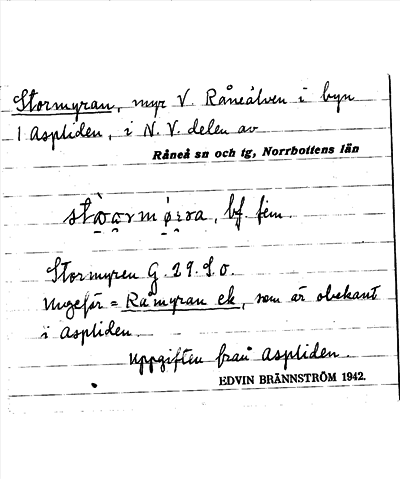 Stormyran, myr V. Råneälven i byn
Aspliden, i N.V. delen av
Råneå sn och tg, Norrbottens län
bf. fem.
Stormyren G. 29. S. o.
Ungefär = Råmyran ek, som är obekant
i Aspliden.
Uppgiften från Aspliden.
EDVIN BRÄNNSTRÖM 1942.